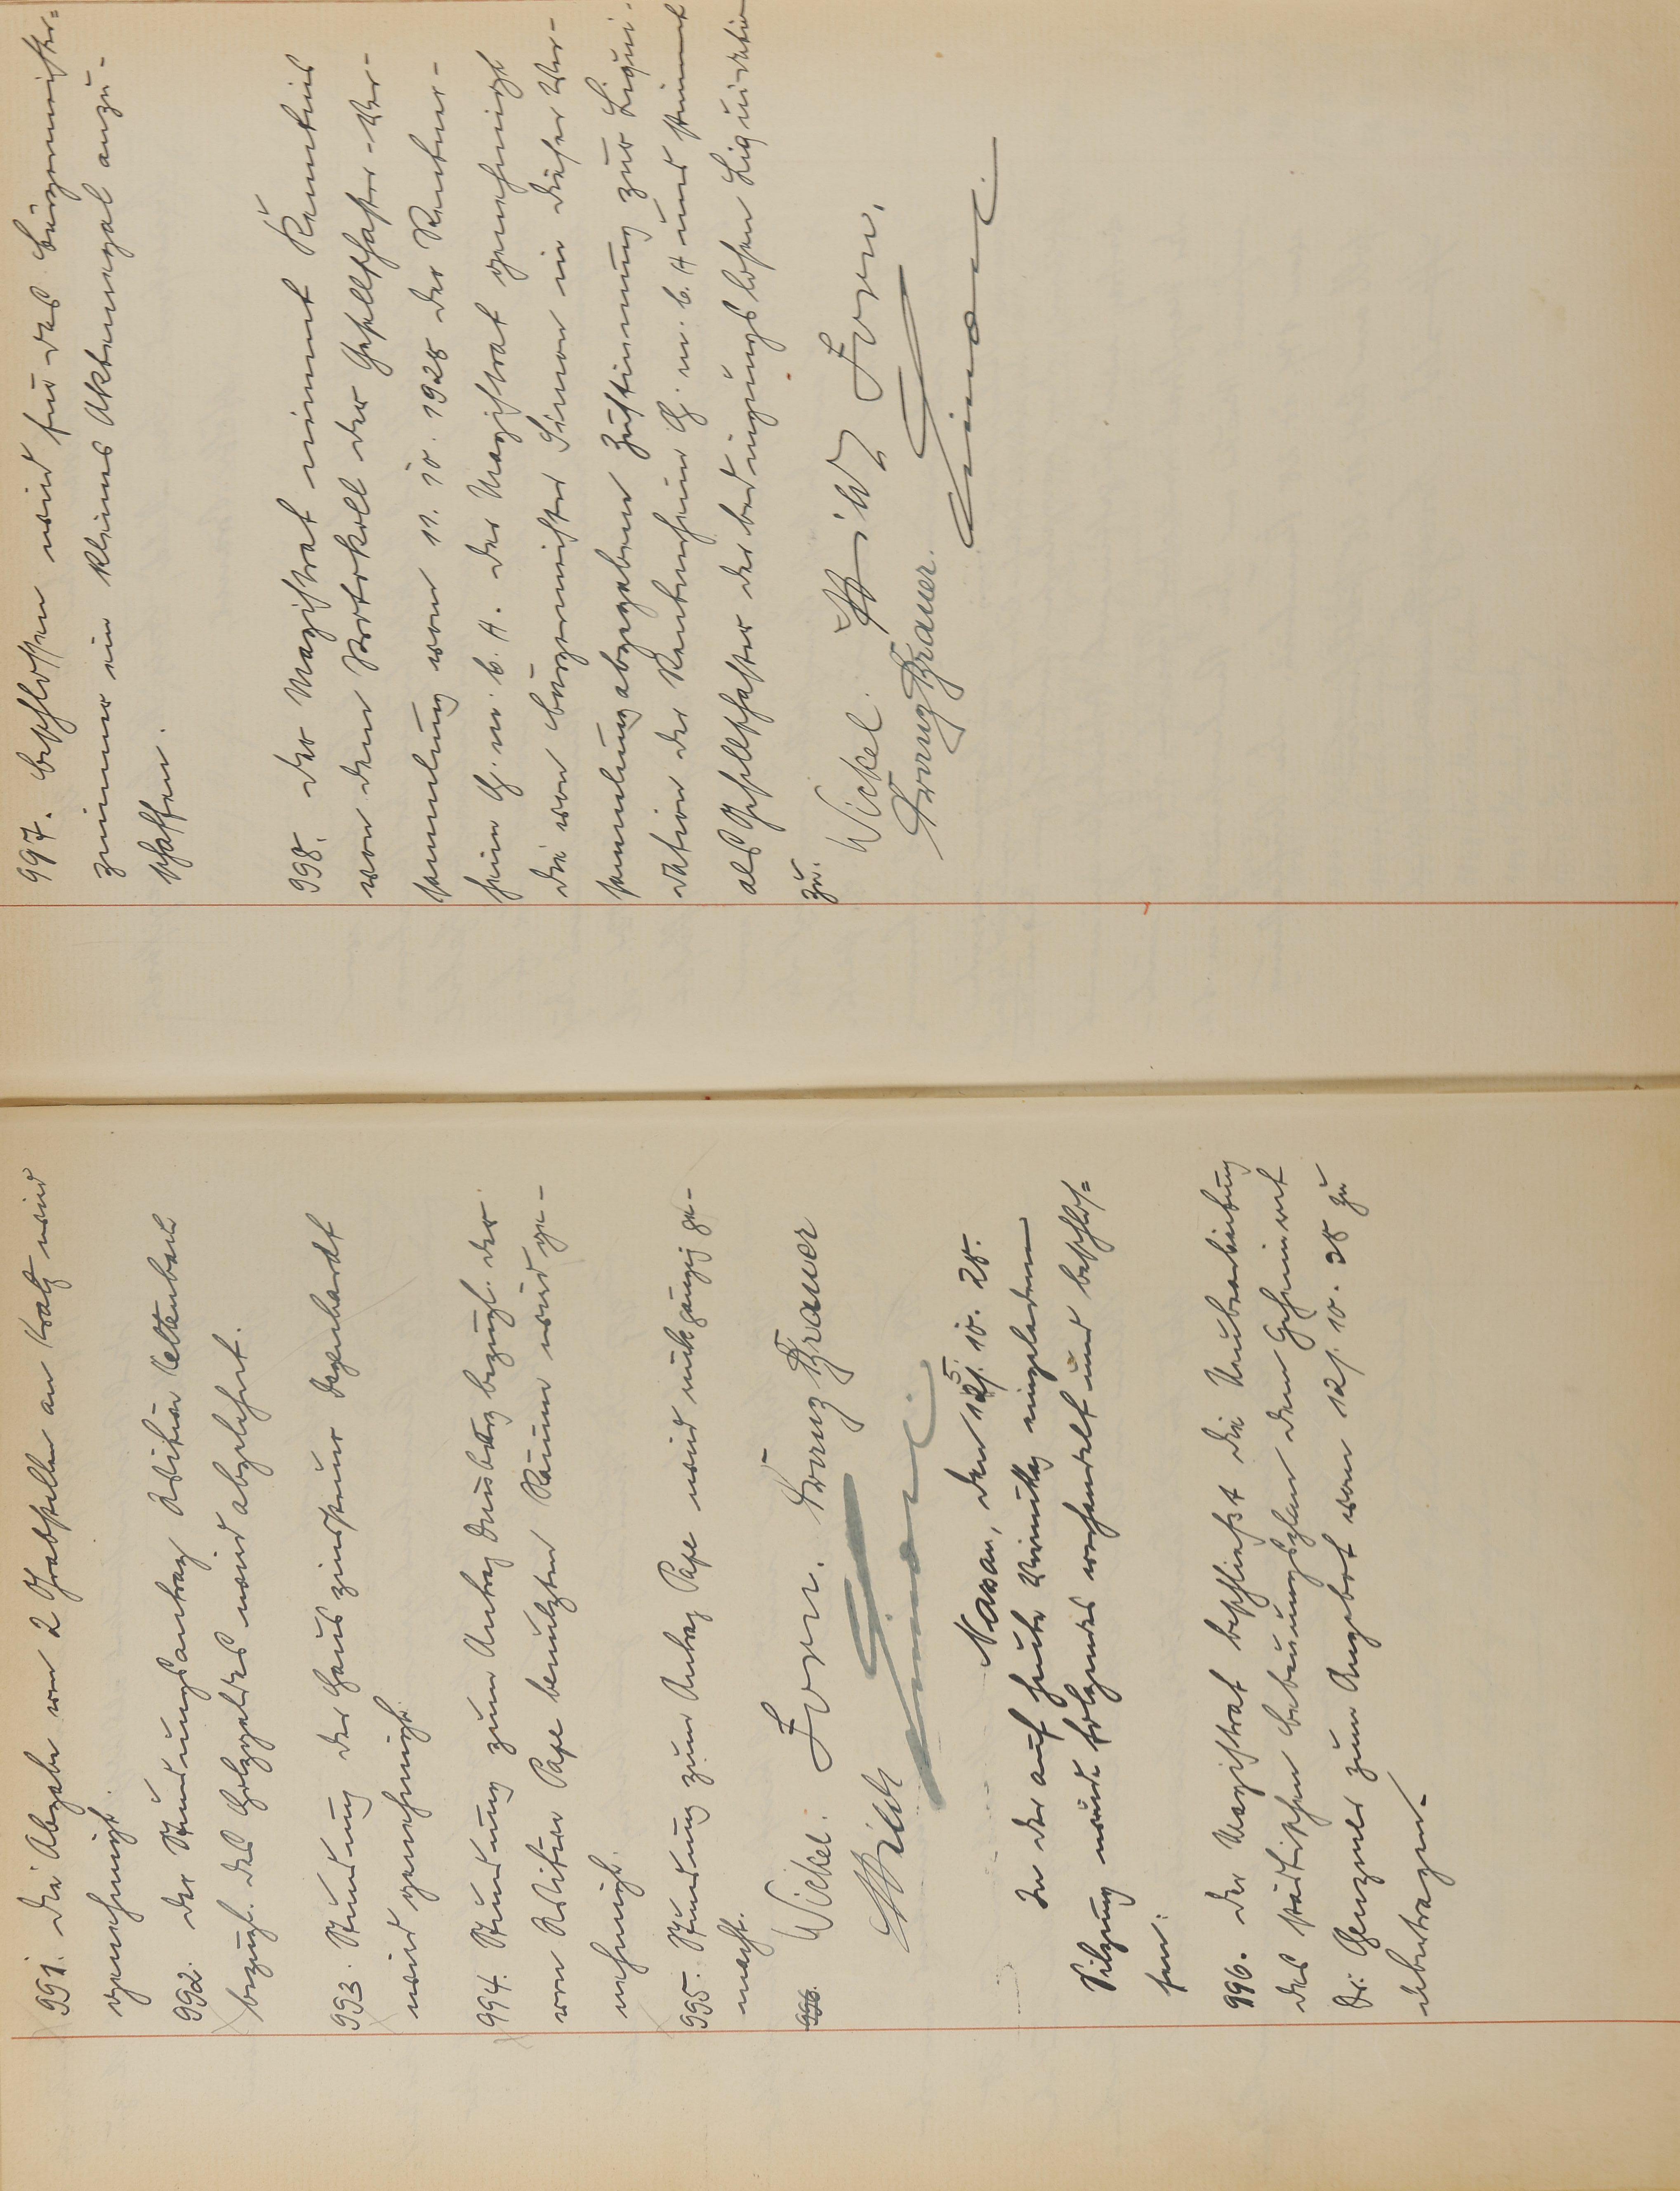 991. Die Abgabe von 2 Grabstellen an Kratz wird
genehmigt.
992. Der Stundungsantrag Witwe
bezügl. des Holzgeldes wird abgelehnt.
993. Stundung der Hauszinssteuer Degenhardt
wird genehmigt.
994. Stundung zum Antrag bezügl. der
von Witwe Pape benutzten Räume wird ge-
nehmigt.
995. Stundung zum Antrag Pape wird rückgängig ge-
macht.
996.
Wickel. Zorn. Franz Brauer
Hild
Simon.
Nassau, den 15. 10. 28.
In der auf heute Vormittag eingeladenen
Sitzung wurde folgendes verhandelt und beschlos=
sen:
996. Der Magistrat beschließt die Neubearbeitung
des städtischen Bebauungsplan dem Geheimrat
Dr. Genzmer zum Angebot vom 12/. 10. 28 zu
übertragen.
997. Beschlossen wird für das Bürgermeister=
zimmer ein kleines Aktenregal anzu-
schaffen.
998. Der Magistrat nimmt Kenntnis
von dem Protokoll der Gesellschafter-Ver-
sammlung vom 11. 10. 1928 der Rentner-
heim G. m. b. H. Der Magistrat genehmigt
die von Bürgermeister Simon in dieser Ver-
sammlung abgegebene Zustimmung zur Liqui-
dation der Rentnerheim G. m. b. H und stimmt
als Gesellschafter der bedingungslosen Liquidation
zu.
Wickel. Hild Zorn.
Franz Brauer.
Simon.